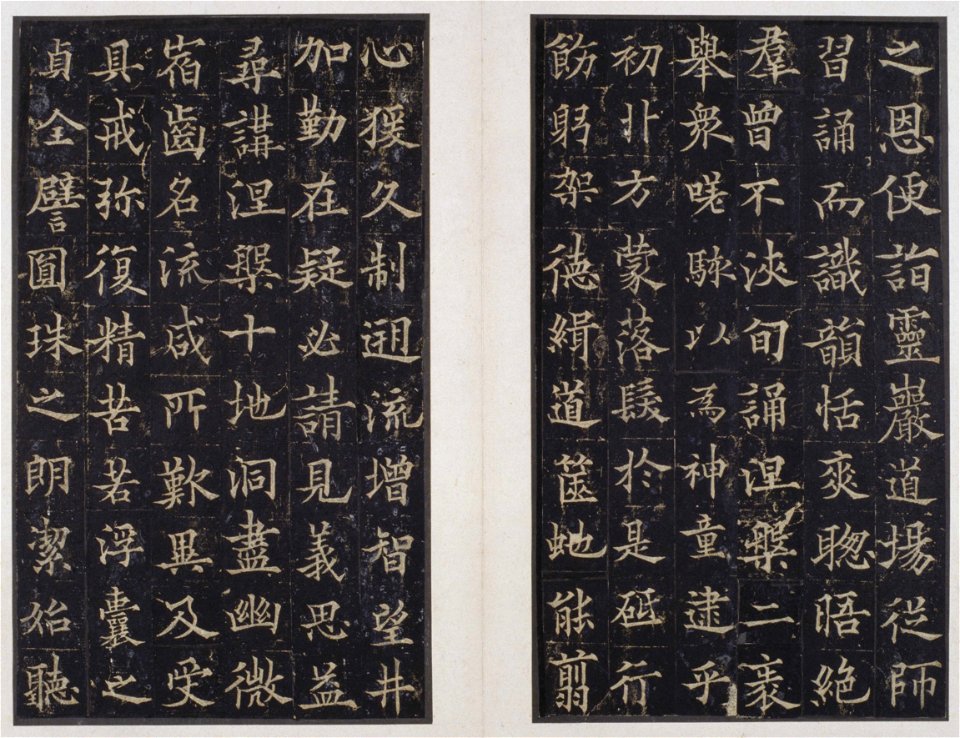 之恩便詣靈巖道場従師
習誦而識韻恬爽聦晤絶
羣曾不浹旬誦涅槃二袠
舉衆嗟駭以為神童逮乎
初丱方蒙落髮於是砥行
飭躬架德緝道篋虵能翦
心猨久制迴流增智望井
加勤在疑必請見義思益
尋講涅槃十地洞盡幽微
宿齒名流咸所歎異及受
具戒弥復精苦若浮囊之
貞全譬圎珠之朗潔始聽